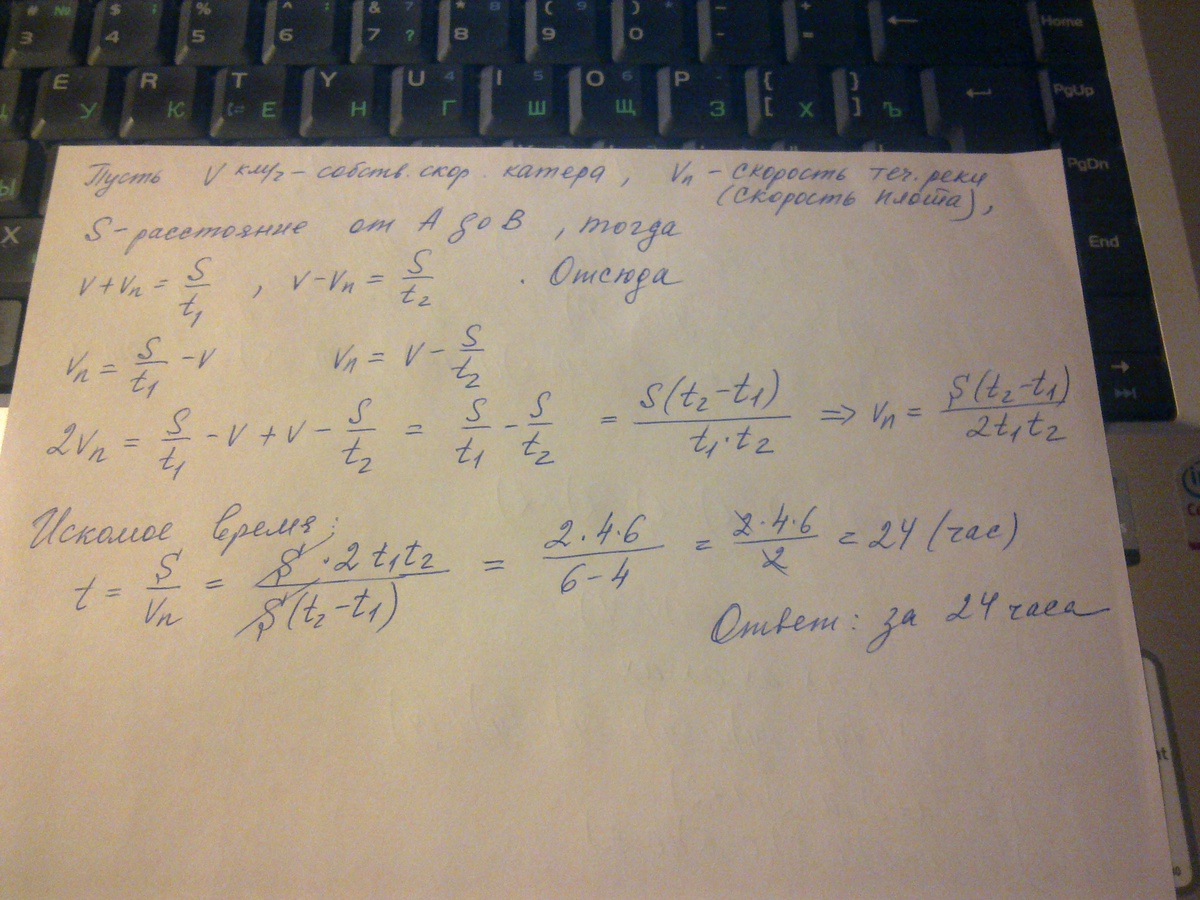 # № 3
$ ; 4
% 5
^ : 6
& 7 ? 7
* 8 8
( 9 9
) * 0
_ -
+ =
← Home
E У
R К
T Е
Y Н
U 4 Г
I 5 Ш
O 6 Щ
P - З
{ [ Х
} ] Ъ
PgUp
PgDn
End
Ы
X
Пусть V км/ч – собств. скор. катера, Vп – скорость теч. реки
(скорость плота),
S – расстояние от А до В, тогда
V + Vп = S/t1 , V – Vп = S/t2 . Отсюда
Vп = S/t1 – V Vп = V – S/t2
2Vп = S/t1 – V + V – S/t2 = S/t1 – S/t2 = S(t2 – t1)/t1·t2 ⇒ Vп = S(t2 – t1)/2t1t2
Искомое время:
t = S/Vп = S·2t1t2/S(t2 – t1) = 2·4·6/6 – 4 = 2·4·6/2 = 24 (час)
Ответ: за 24 часа